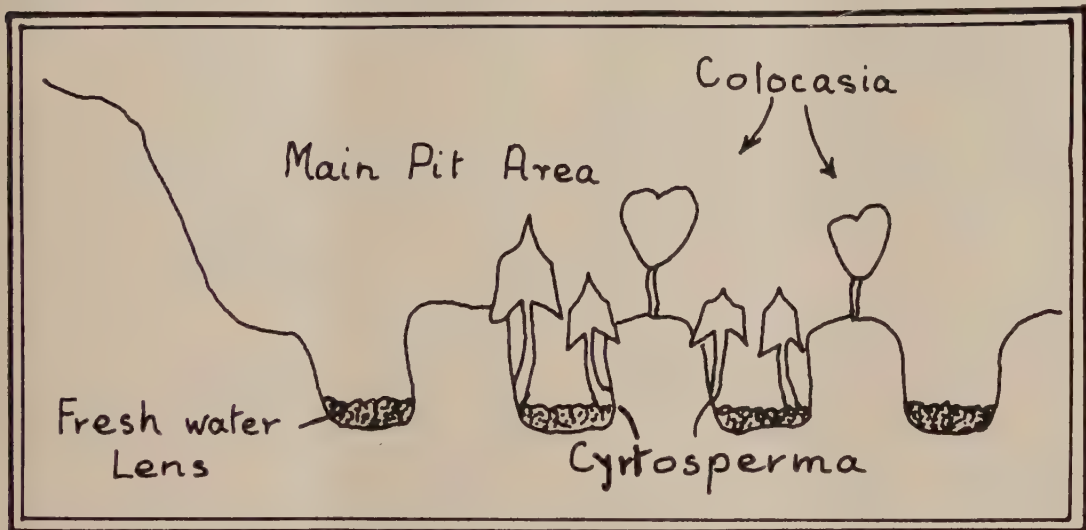 Colocasia
Main Pit Area
Fresh water
Lens
Cyrtosperma